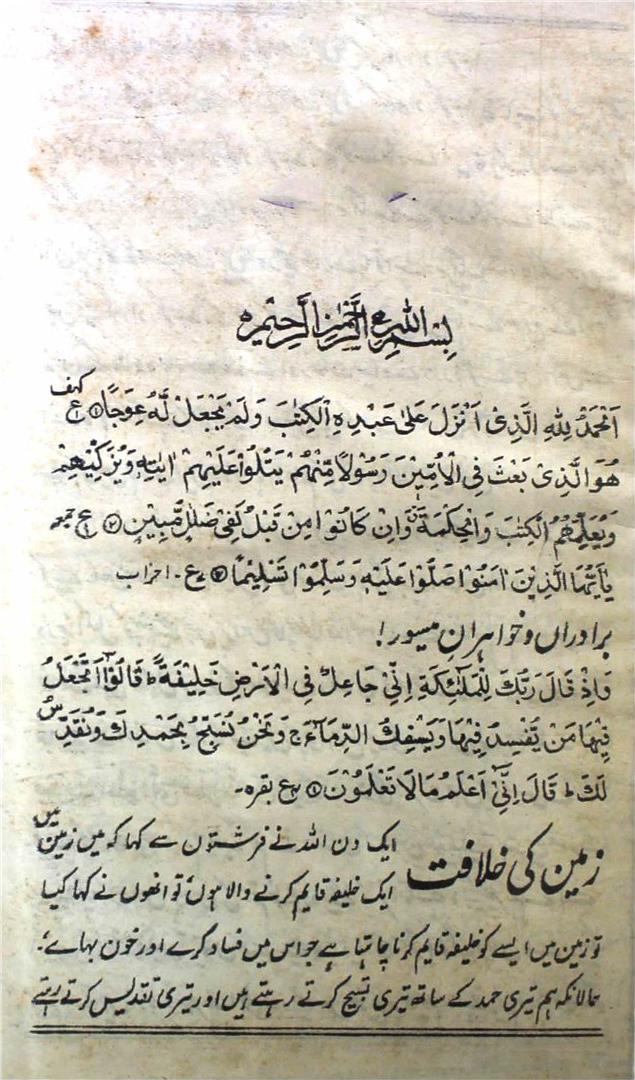 بِسْمِ اللّٰهِ الرَّحْمٰنِ الرَّحِيْمِ
اَلْحَمْدُ لِلّٰهِ الَّذِیْ اَنْزَلَ عَلٰی عَبْدِهِ الْكِتٰبَ وَلَمْ يَجْعَلْ لَّهٗ عِوَجًا ۱ ع کہف
هُوَ الَّذِیْ بَعَثَ فِی الْاُمِّيّٖنَ رَسُوْلًا مِّنْهُمْ يَتْلُوْا عَلَيْهِمْ اٰيٰتِهٖ وَيُزَكِّيْهِمْ
وَيُعَلِّمُهُمُ الْكِتٰبَ وَالْحِكْمَةَ وَاِنْ كَانُوْا مِنْ قَبْلُ لَفِیْ ضَلٰلٍ مُّبِيْنٍ ۲ ع جمعہ
يٰۤاَيُّهَا الَّذِيْنَ اٰمَنُوْا صَلُّوْا عَلَيْهِ وَسَلِّمُوْا تَسْلِيْمًا ع۔ احزاب
برادران و خواہرانِ میسور!
وَاِذْ قَالَ رَبُّكَ لِلْمَلٰٓئِكَةِ اِنِّیْ جَاعِلٌ فِی الْاَرْضِ خَلِيْفَةً ط قَالُوْۤا اَتَجْعَلُ
فِيْهَا مَنْ يُّفْسِدُ فِيْهَا وَيَسْفِكُ الدِّمَآءَ ج وَنَحْنُ نُسَبِّحُ بِحَمْدِكَ وَنُقَدِّسُ
لَكَ ط قَالَ اِنِّیْۤ اَعْلَمُ مَا لَا تَعْلَمُوْنَ ع بقرہ۔
زمین کی خلافت
ایک دن اللہ نے فرشتوں سے کہا کہ میں زمین میں
ایک خلیفہ قایم کرنے والا ہوں تو انھوں نے کہا کیا
تو زمین میں ایسے کو خلیفہ قایم کرنا چاہتا ہے جو اس میں فساد کرے اور خون بہائے؟
حالانکہ ہم تیری حمد کے ساتھ تیری تسبیح کرتے رہتے ہیں اور تیری تقدیس کرتے رہتے